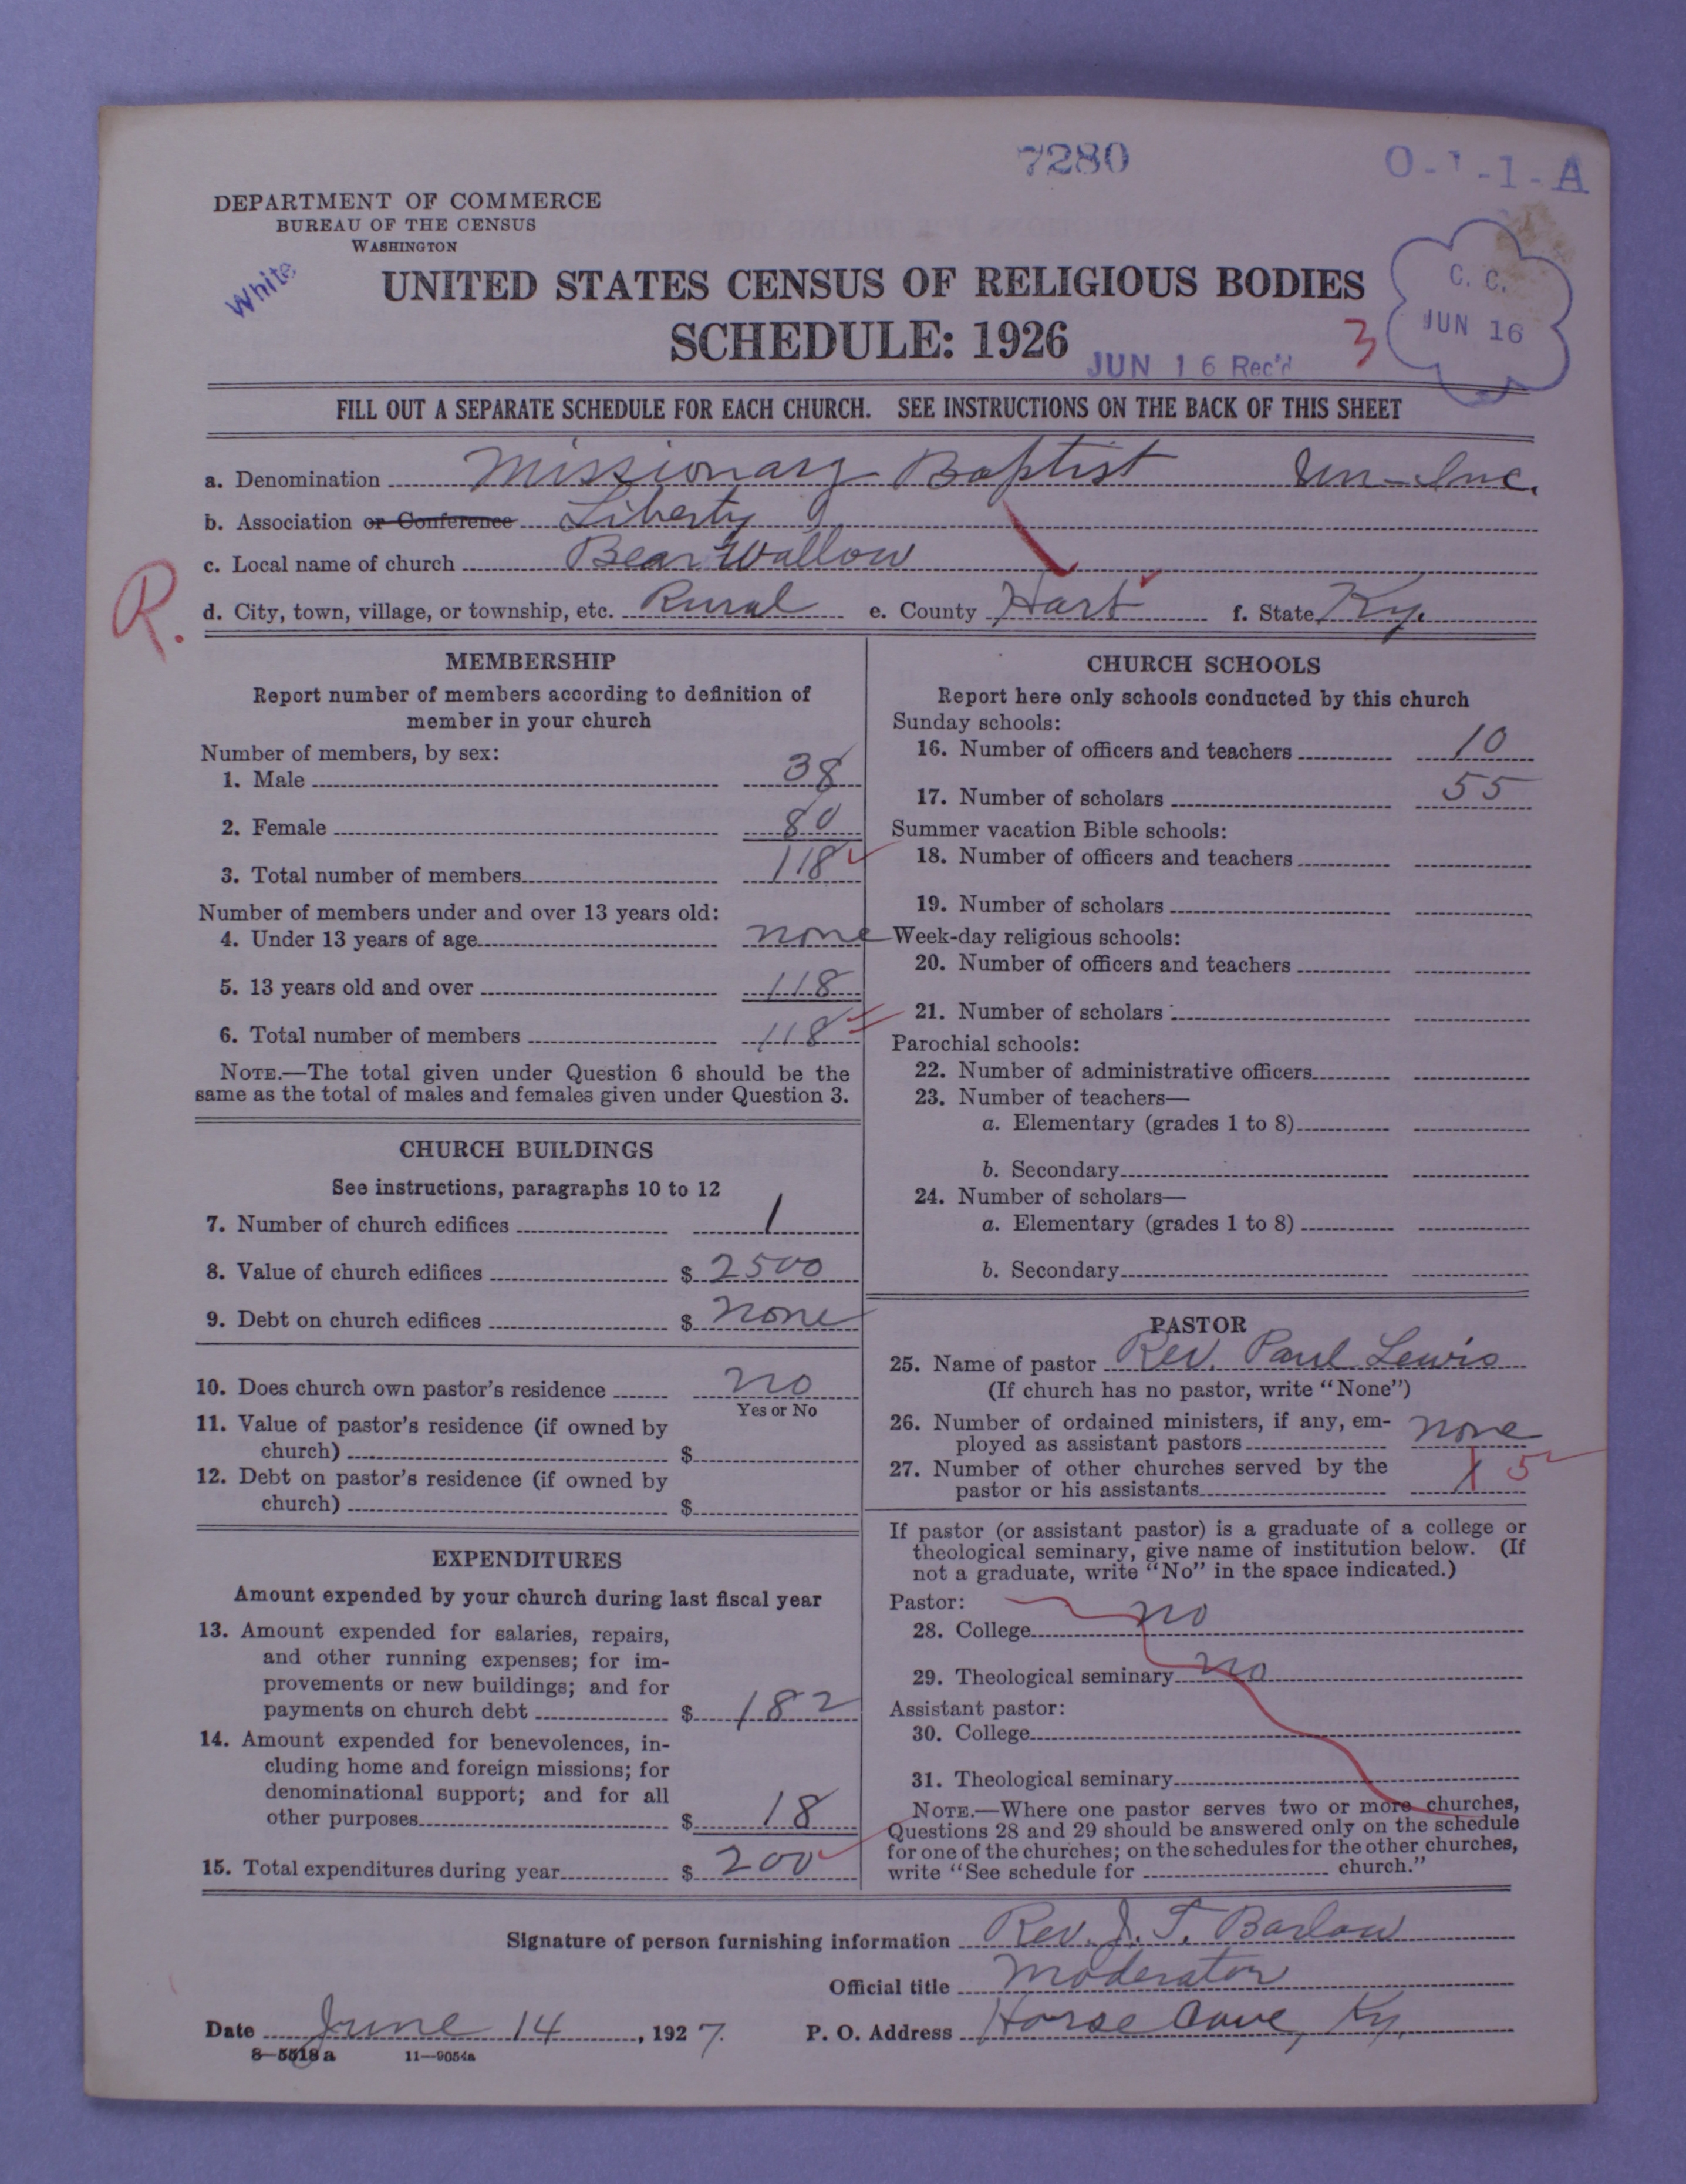 7280
O-1-1-A
DEPARTMENT OF COMMERCE
BUREAU OF THE CENSUS
WASHINGTON
White
UNITED STATES CENSUS OF RELIGIOUS BODIES
SCHEDULE: 1926
C. C.
JUN 16
3
JUN 16 Rec'd
FILL OUT A SEPARATE SCHEDULE FOR EACH CHURCH. SEE INSTRUCTIONS ON THE BACK OF THIS SHEET
a. Denomination Missionary Baptist Un-Inc.
b. Association or Conference Liberty
c. Local name of church Bear Wallow
R.
d. City, town, village, or township, etc. Rural e. County Hart f. State Ky.
MEMBERSHIP
Report number of members according to definition of
member in your church
Number of members, by sex:
1. Male 38
2. Female 80
3. Total number of members 118
Number of members under and over 13 years old:
4. Under 13 years of age none
5. 13 years old and over 118
6. Total number of members 118
NOTE.—The total given under Question 6 should be the
same as the total of males and females given under Question 3.
CHURCH BUILDINGS
See instructions, paragraphs 10 to 12
7. Number of church edifices 1
8. Value of church edifices $ 2500
9. Debt on church edifices $ none
10. Does church own pastor's residence no
Yes or No
11. Value of pastor's residence (if owned by
church) $
12. Debt on pastor's residence (if owned by
church) $
EXPENDITURES
Amount expended by your church during last fiscal year
13. Amount expended for salaries, repairs,
and other running expenses; for im-
provements or new buildings; and for
payments on church debt $ 182
14. Amount expended for benevolences, in-
cluding home and foreign missions; for
denominational support; and for all
other purposes $ 18
15. Total expenditures during year $ 200
CHURCH SCHOOLS
Report here only schools conducted by this church
Sunday schools:
16. Number of officers and teachers 10
17. Number of scholars 55
Summer vacation Bible schools:
18. Number of officers and teachers
19. Number of scholars
Week-day religious schools:
20. Number of officers and teachers
21. Number of scholars
Parochial schools:
22. Number of administrative officers
23. Number of teachers—
a. Elementary (grades 1 to 8)
b. Secondary
24. Number of scholars—
a. Elementary (grades 1 to 8)
b. Secondary
PASTOR
25. Name of pastor Rev. Paul Lewis
(If church has no pastor, write "None")
26. Number of ordained ministers, if any, em-
ployed as assistant pastors none
27. Number of other churches served by the
pastor or his assistants 1 5
If pastor (or assistant pastor) is a graduate of a college or
theological seminary, give name of institution below. (If
not a graduate, write "No" in the space indicated.)
Pastor:
28. College no
29. Theological seminary no
Assistant pastor:
30. College
31. Theological seminary
NOTE.—Where one pastor serves two or more churches,
Questions 28 and 29 should be answered only on the schedule
for one of the churches; on the schedules for the other churches,
write "See schedule for church."
Signature of person furnishing information Rev. J. T. Barlow
Official title Moderator
Date June 14, 1927. P. O. Address Horse Cave, Ky.
8—5518 a 11—9054a